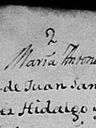 2
María Antoni
de Juan San
ez Hidalgo y